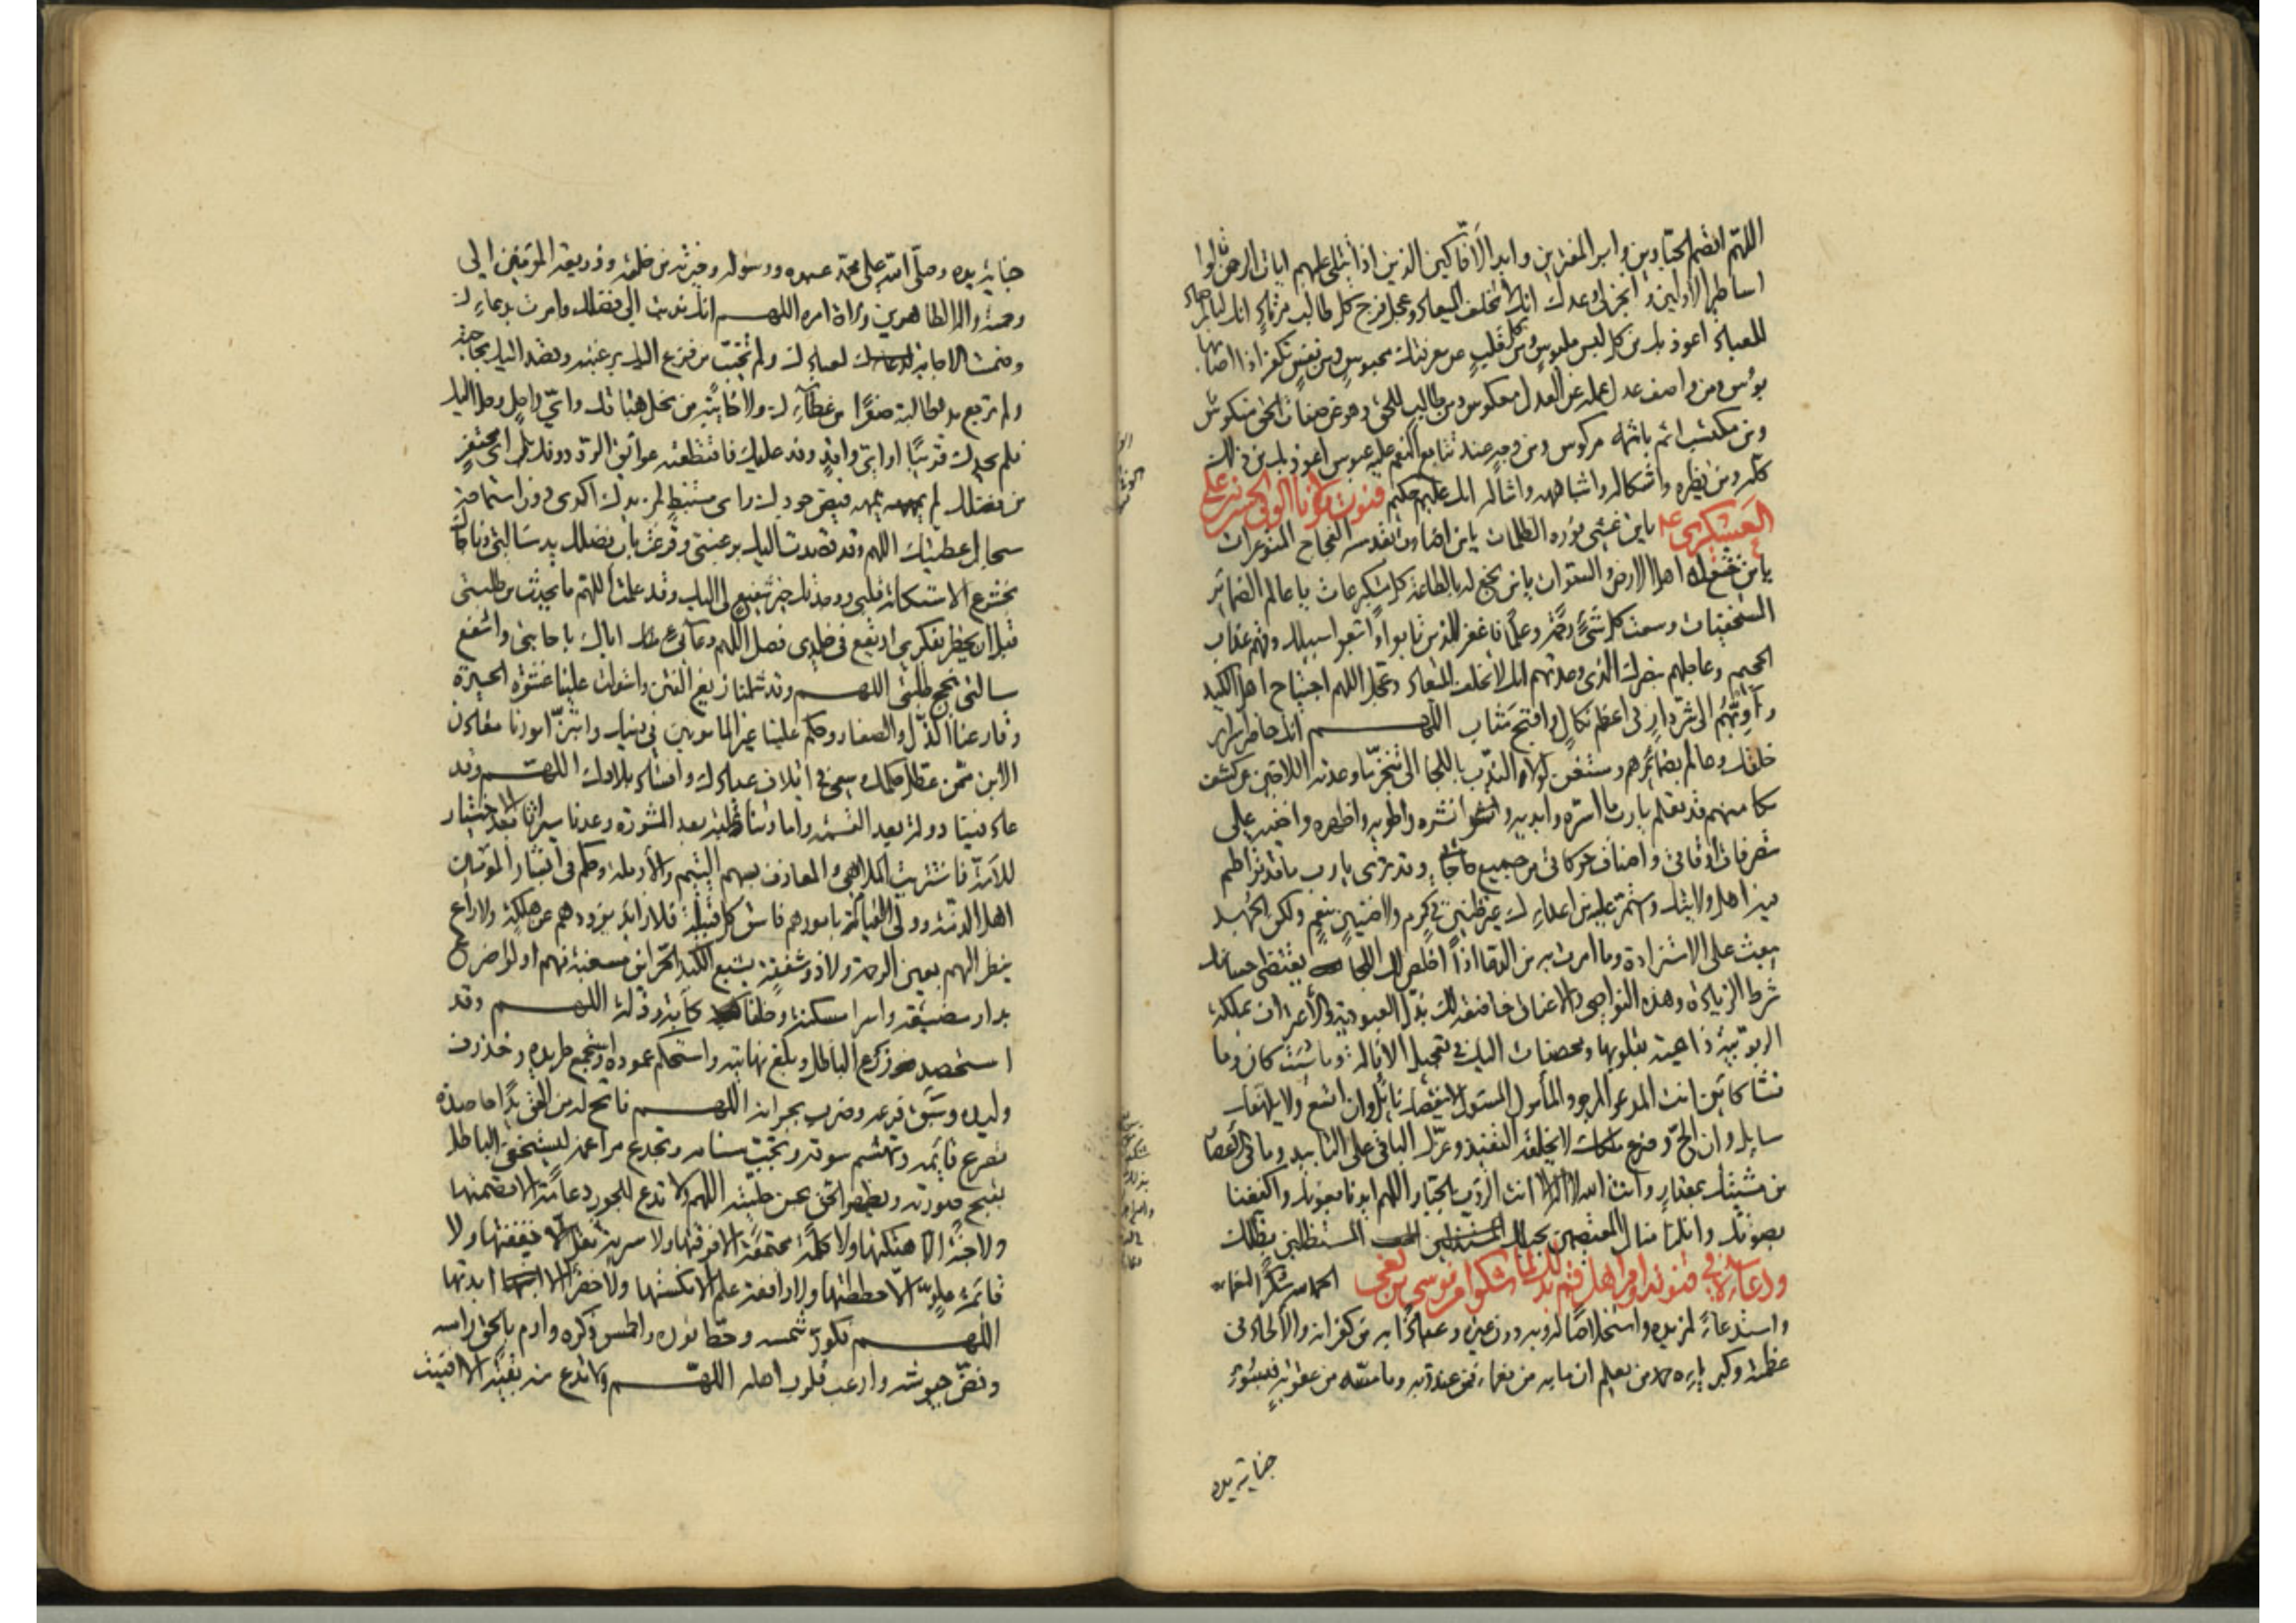 اللهم اقصم الجبارين وابر المفترين وابد الافاكين الذين اذا تتلى عليهم ايات الرحمن قالوا
اساطير الاولين وانجز لي وعدك انك لا تخلف الميعاد وعجل فرج كل طالب مرتاد انك لبالمرصاد
للعباد اعوذ بك من كل لبس ملبوس ومن كل قلب عن معرفتك محبوس ومن نفس تكفر اذا اصابها
بؤس ومن واصف عدل عمله عن العدل معكوس ومن طالب للحق وهو عن صفات الحق منكوس
ومن مكتسب اثم باثمه مركوس ومن وجه عند تتابع النعم عليه عبوس اعوذ بك من ذلك
كله ومن نظيره واشكاله واشباهه وامثاله انك عليم حكيم قنوت مولانا الوفي الحسن بن علي
العسكري ع يا من غشي نوره الظلمات يا من اضاءت بقدسه الفجاج المتوعرات
يا من خشع له اهل الارض والسموات يا من بخع له بالطاعة كل متكبر عات يا عالم الضمائر
المستخفيات وسعت كل شيء رحمة وعلما فاغفر للذين تابوا واتبعوا سبيلك وقهم عذاب
الجحيم وعاجلهم بنصرك الذي وعدتهم انك لا تخلف الميعاد وعجل اللهم اجتياح اهل الكيد
وآوهم الى شر دار في اعظم نكال واقبح متاب اللهم انك حاضر اسرار
خلقك وعالم بضمائرهم ومستغن لولا الندب باللجا الى تنجز ما وعدته اللاجين عن كشف
مكامنهم وقد تعلم يا رب ما اسره وابديه وانشره واطويه واظهره واخفيه على
متصرفات اوقاتي واصناف حركاتي من جميع حاجاتي وقد ترى يا رب ما قد تراطم
فيه اهل ولايتك واستمر عليهم من اعدائك غير ظنين في كرم ولا ضنين بنعم ولكن الجهد
يبعث على الاستزادة وما امرت به من الدعا اذا اخلص لك اللجا يقتضي احسانك
شرط الزيادة وهذه النواصي والاعناق خاضعة لك بذل العبودية والاعتراف بملكة
الربوبية داعية بقلوبها ومحصنات اليك في تعجيل الانالة وما شئت كان وما
تشا كائن انت المدعو المرجو المأمول المسئول لا ينقصك نائل وان اتسع ولا يلحفك
سايل وان الح وضرع ملكك لا يخلقه التنفيد وعزك الباقي على التابيد وما في الاعصار
من مشيتك بمقدار وانت الله لا اله الا انت الرؤف الجبار اللهم ايدنا بعونك واكنفنا
بصونك وانلنا منال المعتصمين بحبلك المستظلين بظلك
ودعا ع في قنوته وامر اهل قم بذلك لما شكوا من موسى بن بغى الحمد لله شكرا لنعمائه
واستدعاء لمزيده واستخلاصا له وبه دون غيره وعياذا به من كفرانه والالحاد في
عظمته وكبريائه حمد من يعلم ان ما به من نعماء فمن عند ربه وما مسه من عقوبة فبسوء
جناية يده
جناية يده وصلى الله على محمد عبده ورسوله وخيرته من خلقه وذريعة المؤمنين الى
رحمته واله الطاهرين ولاة امره اللهم انك ندبت الى فضلك وامرت بدعائك
وضمنت الاجابة لعبادك ولم تخيب من فزع اليك برغبته وقصد اليك بحاجته
ولم ترجع يد طالبة صفرا من عطائك ولا خائبة من نحل هباتك واي راحل رحل اليك
فلم يجدك قريبا او اي وافد وفد عليك فاقتطعته عوائق الرد دونك بل اي محتفر
من فضلك لم يمهه فيض جودك واي مستنبط لمزيدك اكدى دون استماحة
سجال عطيتك اللهم وقد قصدت اليك برغبتي وقرعت باب فضلك يد مسالتي وناجاك
بخشوع الاستكانة قلبي ووجدتك خير شفيع لي اليك وقد علمت اللهم ما يحدث من طلبتي
قبل ان يخطر بفكري او يقع في خلدي فصل اللهم دعائي اياك باجابتي واشفع
مسالتي بنجح طلبتي اللهم وقد شملنا زيغ الفتن واستولت علينا غشوة الحيرة
وقارعنا الذل والصغار وحكم علينا غير المامونين في دينك وابتز امورنا معادن
الابن ممن عطل حكمك وسعى في اتلاف عبادك وافساد بلادك اللهم وقد
عاد فيئنا دولة بعد القسمة وامارتنا غلبة بعد المشورة وعدنا ميراثا بعد الاختيار
للامة فاشتريت الملاهي والمعازف بسهم اليتيم والارملة وحكم في ابشار المؤمنين
اهل الذمة وولي القيام بامورهم فاسق كل قبيلة فلا ذائد يذودهم عن هلكة ولا راع
ينظر اليهم بعين الرحمة ولا ذو شفقة يشبع الكبد الحرى من مسغبة فهم اولو ضرع
بدار مضيعة واسراء مسكنة وخلفاء كآبة وذلة اللهم وقد
استحصد زرع الباطل وبلغ نهايته واستحكم عموده واستجمع طريده وخذرف
وليده وبسق فرعه وضرب بجرانه اللهم فاتح له من الحق يدا حاصدة
تصرع قائمه وتهشم سوقه وتجب سنامه وتجدع مراغمه ليستخفي الباطل
بقبح صورته ويظهر الحق بحسن حليته اللهم ولا تدع للجور دعامة الا قصمتها
ولا جنة الا هتكتها ولا كلمة مجتمعة الا فرقتها ولا سرية ثقل الا خففتها ولا
قائمة علو الا حططتها ولا رافعة علم الا نكستها ولا خضراء الا ابدتها
اللهم فكور شمسه وحط نوره واطمس ذكره وارم بالحق راسه
وفض جيوشه وارعب قلوب اهله اللهم ولا تدع منه بقية الا افنيت